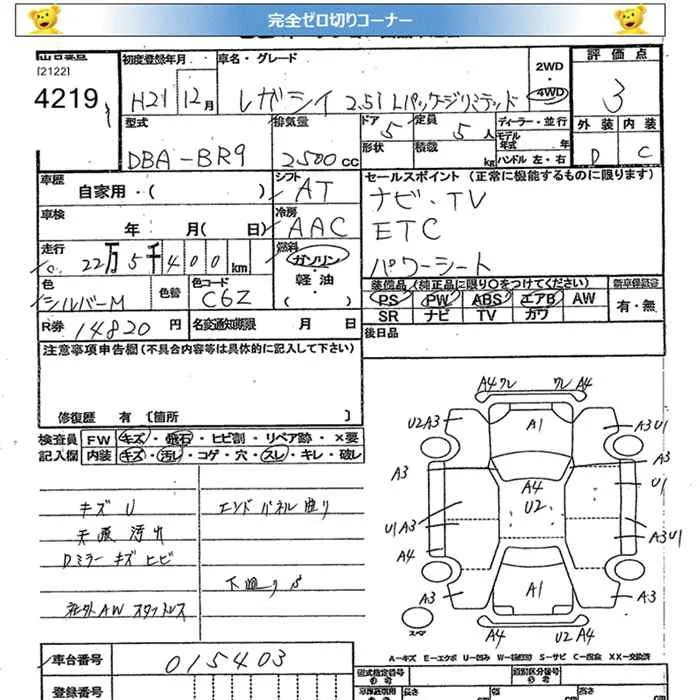 完全ゼロ切りコーナー
[2122]
4219
初度登録年月
H21 12月
車名・グレード
レガシイ 2.5i Lパッケージリミテッド
2WD
・
4WD
評価点
3
外装 内装
D C
型式
DBA-BR9
排気量
2500cc
ドア 5
形状
定員 5人
積載 kg
ディーラー・並行
モデル年式 年
ハンドル 左・右
車歴
自家用・( )
シフト
AT
車検
年 月( 日)
冷房
AAC
走行
22万5千400km
燃料
ガソリン
・
軽油
( )
色
シルバーM
色替
色コード
C6Z
R券 14820円
名変通知期限 月 日
セールスポイント (正常に機能するものに限ります)
ナビ・TV
ETC
パワーシート
装備品 (純正品に限り○をつけてください)
PS PW ABS エアB AW
SR ナビ TV カワ
新車保証書
有・無
後日品
注意事項申告欄 (不具合内容等は具体的に記入して下さい)
修復歴 有 〔箇所 〕
検査員記入欄
FW キズ・飛石・ヒビ割・リペア跡・×要
内装 キズ・汚レ・コゲ・穴・スレ・キレ・破レ
キズ U
天張 汚レ
Dミラー キズ ヒビ
社外AW スタットレス
エンドパネル曲り
下廻りS
A4 ワレ ワレ A4
U2A3 A1 A3U1
A3 A4 A3
U2 U1
U1A3 A3U1
A4
A3 A1 A3
スペア
A4 U2 A4
A=キズ E=エクボ U=凹み W=補修跡 S=サビ C=腐食 XX=交換済
車台番号 015403
登録番号
型式指定番号
類別区分番号
長さ